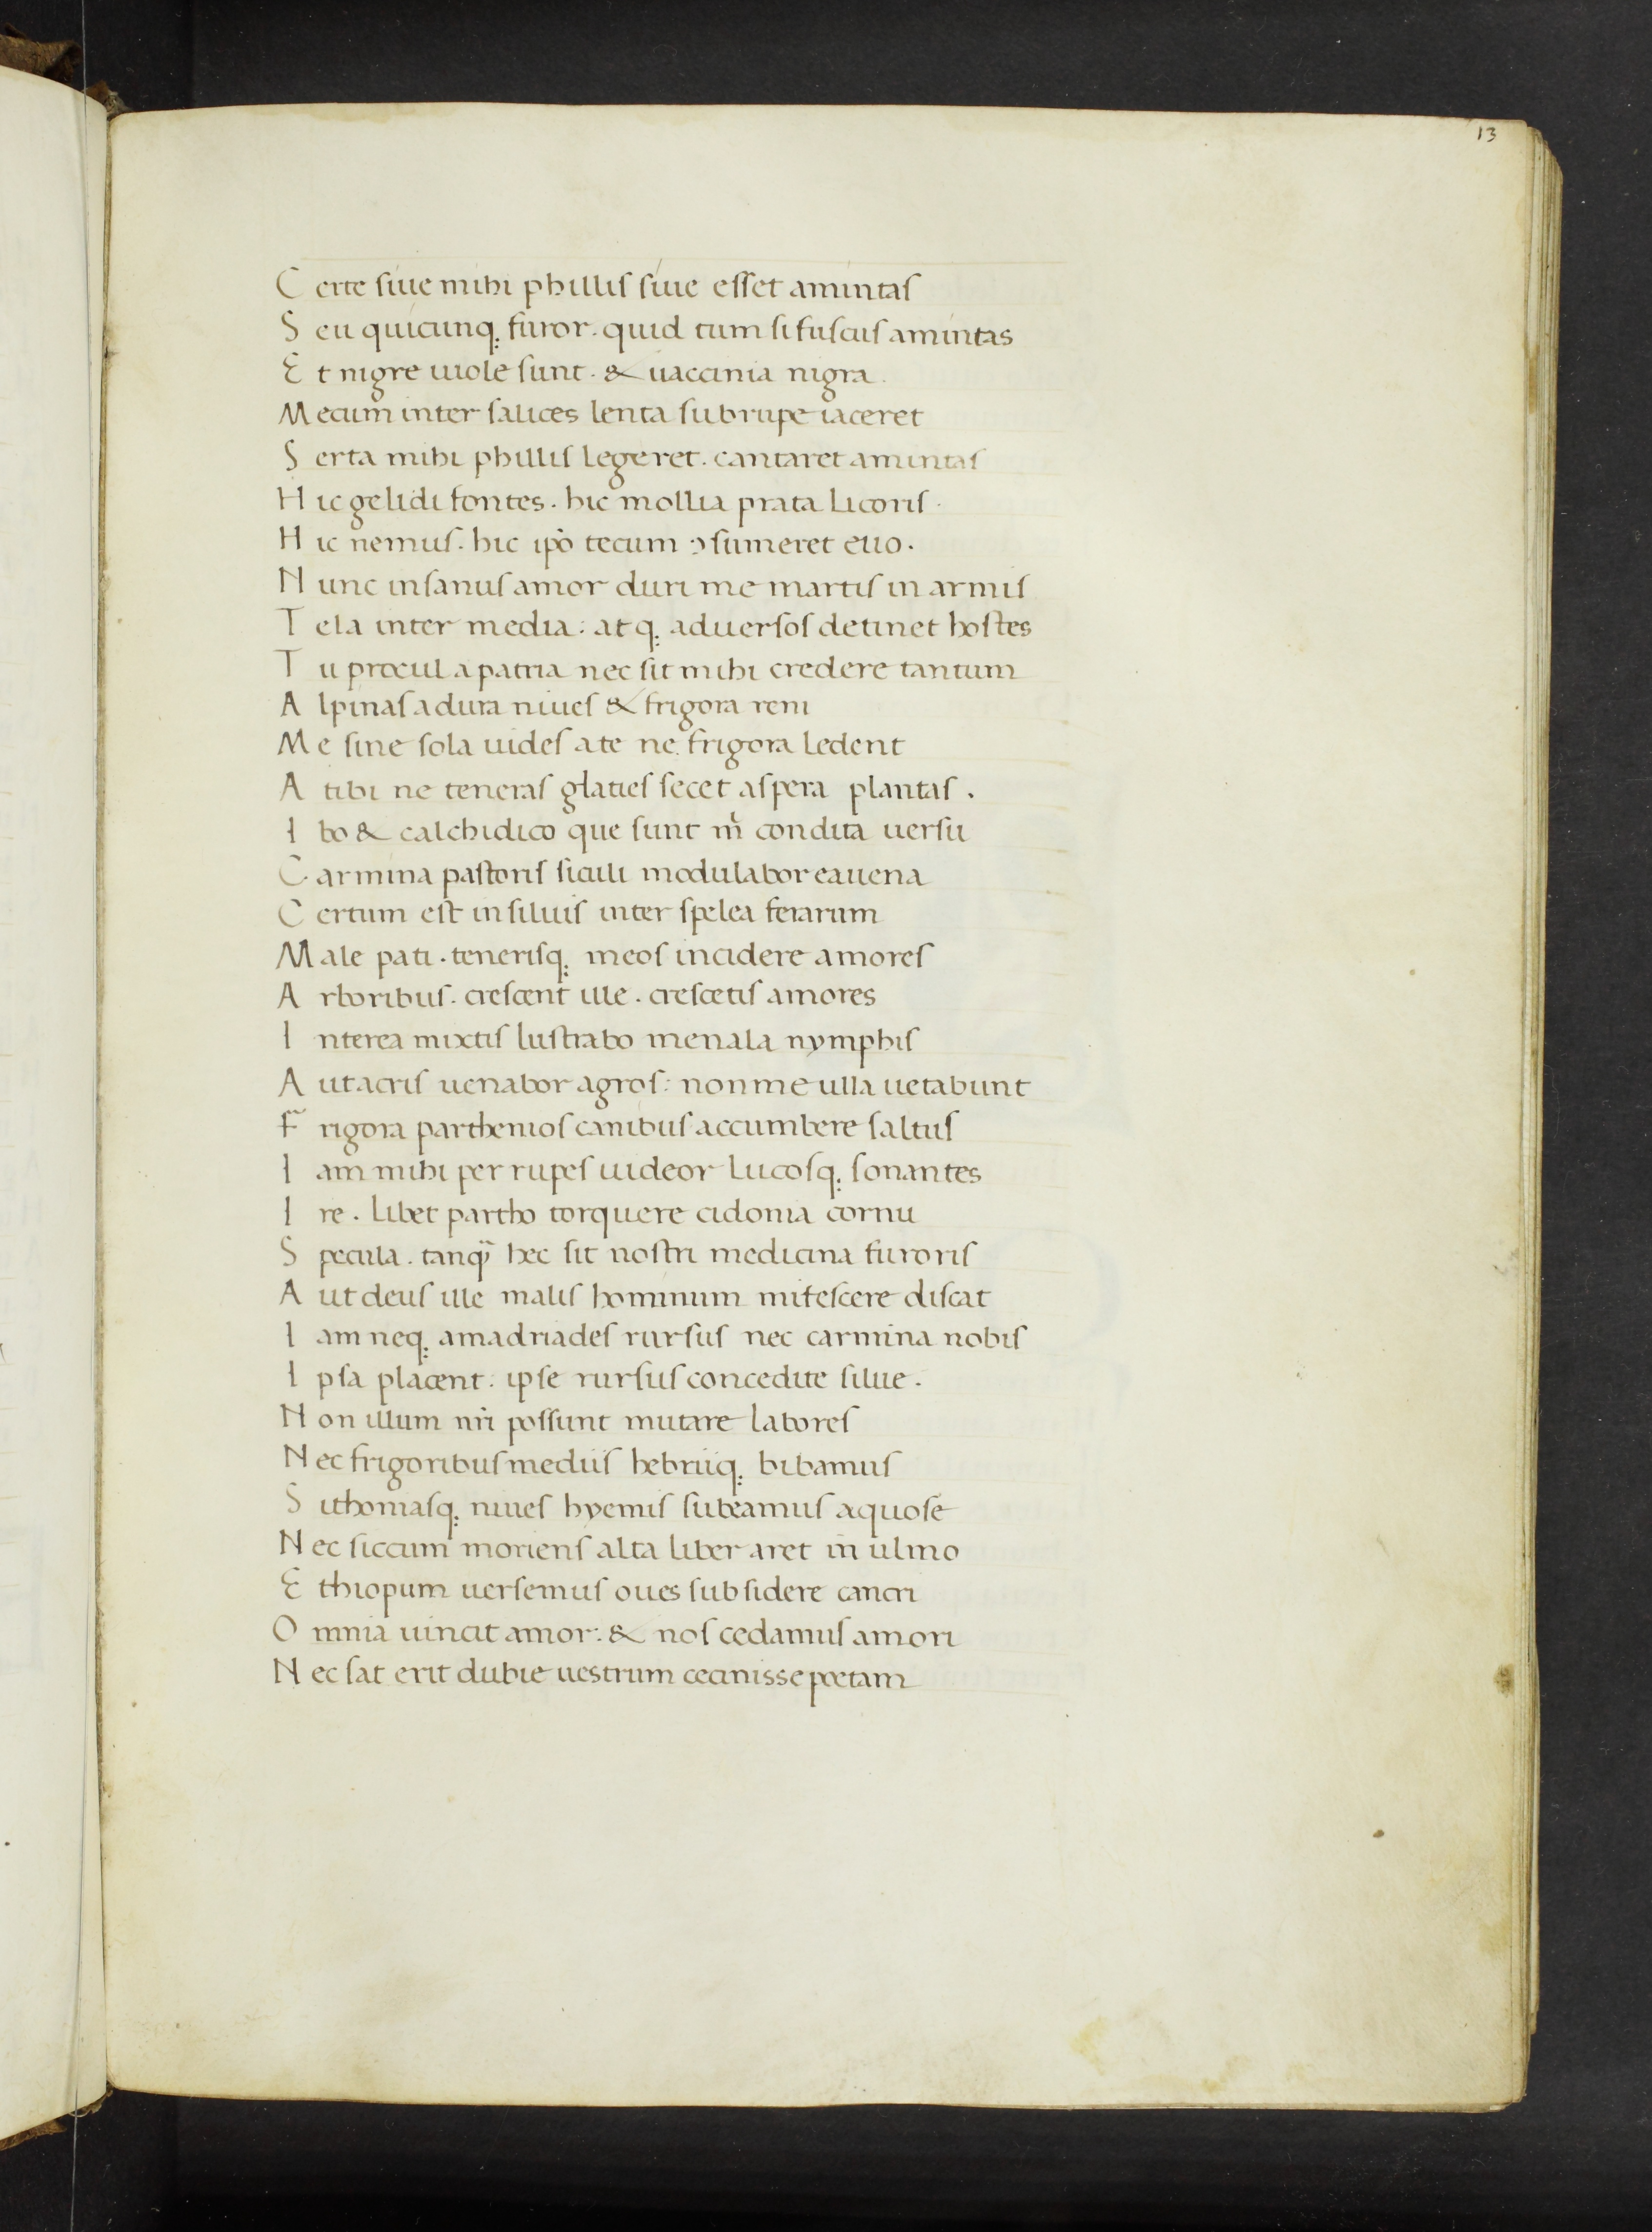 13
C erte siue mihi phillis siue esset amintas
S eu quicunq; furor. quid tum si fuscus amintas
E t nigre uiole sunt. & uaccinia nigra.
M ecum inter salices lenta sub rupe iaceret
S erta mihi phillis legeret. cantaret amintas
H ic gelidi fontes. hic mollia prata licoris.
H ic nemus. hic ip̄o tecum ↄsumeret euo.
N unc insanus amor duri me martis in armis
T ela inter media: atq; aduersos detinet hostes
T u procul a patria nec sit mihi credere tantum
A lpinas a dura niues & frigora reni
M e sine sola uides a te ne frigora ledent
A tibi ne teneras glaties secet aspera plantas.
I bo & calchidico que sunt m̊ condita uersu
C armina pastoris siculi modulabor eauena
C ertum est in siluis inter spelea ferarum
M ale pati. tenerisq; meos incidere amores
A rboribus. crescent ille. crescetis amores
I nterea mixtis lustrabo menala nymphis
A ut acris uenabor agros: non me ulla uetabunt
F rigora parthenios canibus accumbere saltus
I am mihi per rupes uideor lucosq; sonantes
I re. libet partho torquere cidonia cornu
S pecula. tanq̃ hec sit nostri medicina furoris
A ut deus ille malis hominum mitescere discat
I am neq; amadriades rursus nec carmina nobis
I psa placent: ipse rursus concedite silue.
N on illum nr̄i possunt mutare labores
N ec frigoribus mediis hebriiq; bibamus
S ithoniasq; niues hyemis subeamus aquose
N ec siccum moriens alta liber aret in ulmo
E thiopum uersemus oues sub sidere cancri
O mnia uincit amor: & nos cedamus amori
N ec sat erit dubie uestrum cecinisse poetam